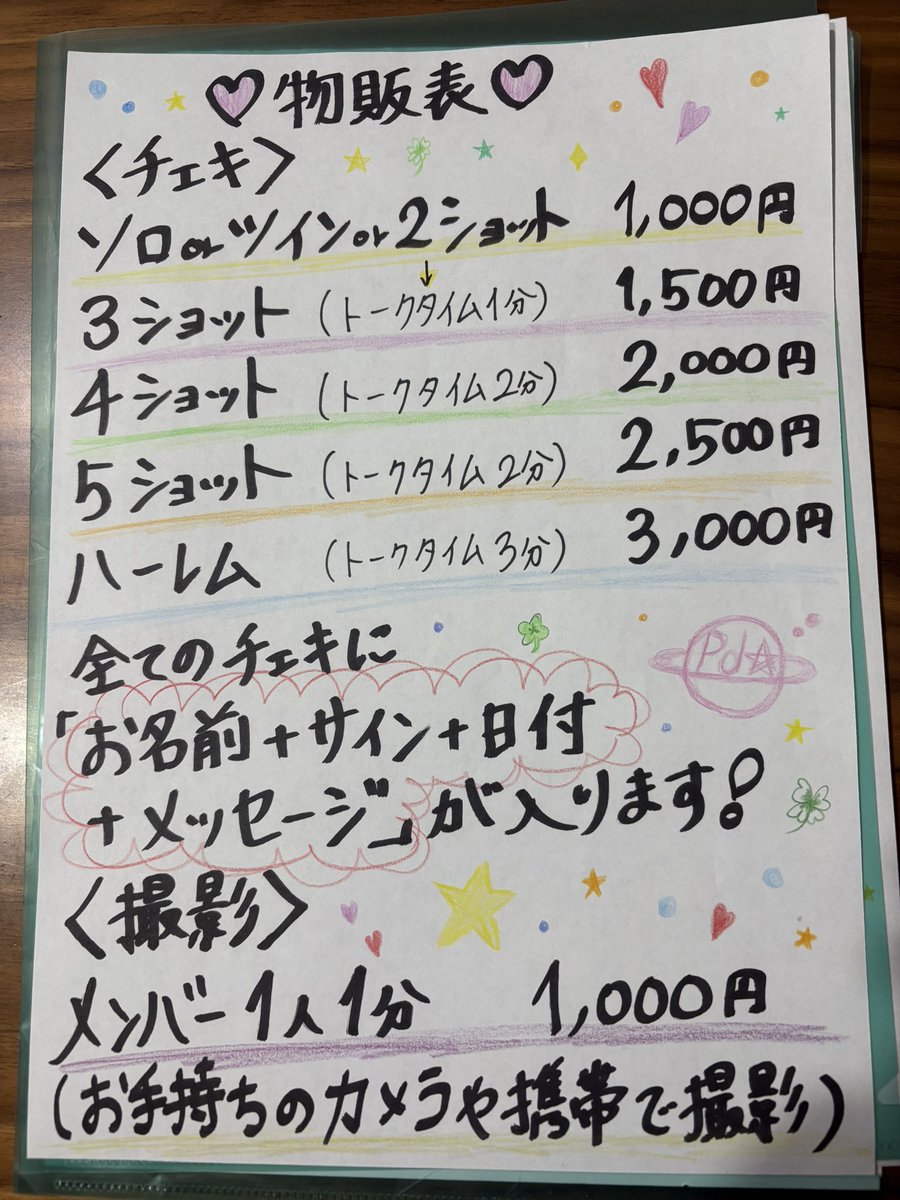 ♡物販表♡
〈チェキ〉
ソロorツインor2ショット 1,000円
↓
3ショット (トークタイム1分) 1,500円
4ショット (トークタイム2分) 2,000円
5ショット (トークタイム2分) 2,500円
ハーレム (トークタイム3分) 3,000円
全てのチェキに
Pd☆
「お名前+サイン+日付
+メッセージ」が入ります!
〈撮影〉
メンバー1人1分 1,000円
(お手持ちのカメラや携帯で撮影)